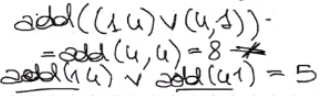 add((1 4) ∨ (4,1))·
= add(4,4) = 8 ≠
add(1 4) ∨ add(4 1) = 5